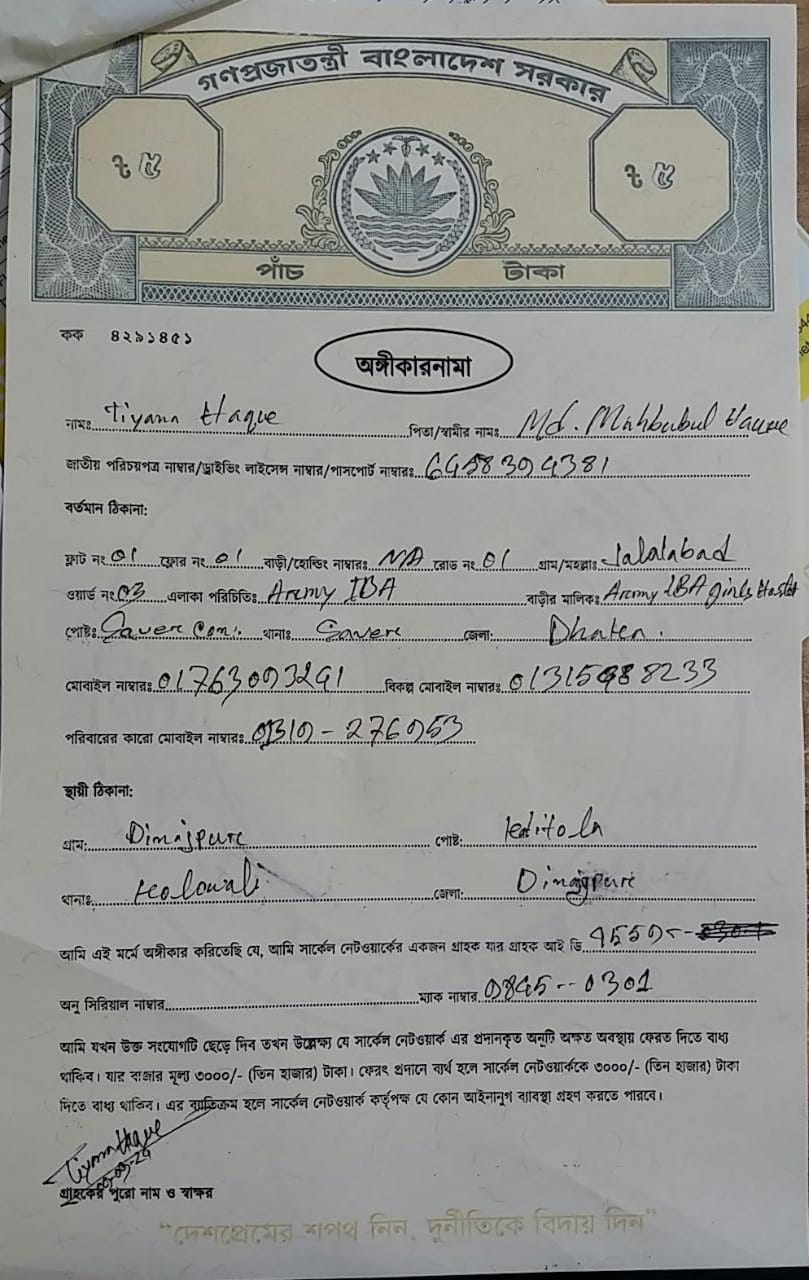 গণপ্রজাতন্ত্রী বাংলাদেশ সরকার
৳ ৫ ৳ ৫
পাঁচ টাকা
কক ৪২৯১৪৫১
অঙ্গীকারনামা
নামঃ Tiyana Haque পিতা/স্বামীর নামঃ Md. Mahbubul Haque
জাতীয় পরিচয়পত্র নাম্বার/ড্রাইভিং লাইসেন্স নাম্বার/পাসপোর্ট নাম্বারঃ
বর্তমান ঠিকানা:
ফ্লাট নং 01 ফ্লোর নং 01 বাড়ী/হোল্ডিং নাম্বারঃ NA রোড নং 01 গ্রাম/মহল্লাঃ Jalalabad
ওয়ার্ড নং 03 এলাকা পরিচিতিঃ Army IBA বাড়ীর মালিকঃ Army IBA girls Hostel
পোষ্টঃ Saver Con. থানাঃ Saver জেলা: Dhaka.
মোবাইল নাম্বারঃ বিকল্প মোবাইল নাম্বারঃ
পরিবারের কারো মোবাইল নাম্বারঃ
স্থায়ী ঠিকানা:
গ্রাম: Dinajpur পোষ্ট:
থানাঃ জেলা: Dinajpur
আমি এই মর্মে অঙ্গীকার করিতেছি যে, আমি সার্কেল নেটওয়ার্কের একজন গ্রাহক যার গ্রাহক আই ডি
অনু সিরিয়াল নাম্বার ম্যাক নাম্বার
আমি যখন উক্ত সংযোগটি ছেড়ে দিব তখন উল্লেক্ষ্য যে সার্কেল নেটওয়ার্ক এর প্রদানকৃত অনুটি অক্ষত অবস্থায় ফেরত দিতে বাধ্য
থাকিব। যার বাজার মূল্য ৩০০০/- (তিন হাজার) টাকা। ফেরৎ প্রদানে ব্যর্থ হলে সার্কেল নেটওয়ার্ককে ৩০০০/- (তিন হাজার) টাকা
দিতে বাধ্য থাকিব। এর ব্যাতিক্রম হলে সার্কেল নেটওয়ার্ক কর্তৃপক্ষ যে কোন আইনানুগ ব্যাবস্থা গ্রহণ করতে পারবে।
Tiyana Haque
গ্রাহকের পুরো নাম ও স্বাক্ষর
"দেশপ্রেমের শপথ নিন, দুর্নীতিকে বিদায় দিন"